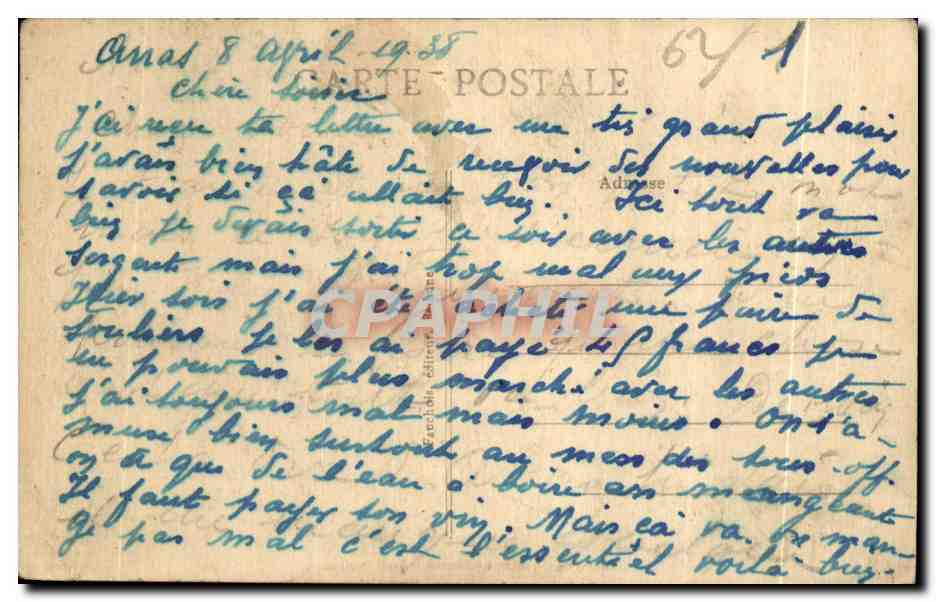 Arras 8 avril 1938
64 1
CARTE POSTALE
Chère
J'ai reçu ta lettre avec un très grand plaisir
J'avais bien hâte de recevoir des nouvelles pour
Adresse
savoir si ça allait bien. Ici tout va
bien je devais sortir ce soir avec les autres
sergents mais j'ai trop mal aux pieds
Hier soir j'ai été acheter une paire de
CPAPHIL
souliers je les ai payé 45 francs je
ne pouvais plus marché avec les autres
J'ai toujours mal mais moins. On s'a-
muse bien surtout au mess des sous-off.
on a que de l'eau à boire en mangeant
Il faut payer son vin. Mais ça va. On man-
ge pas mal c'est l'essentiel voilà bien.